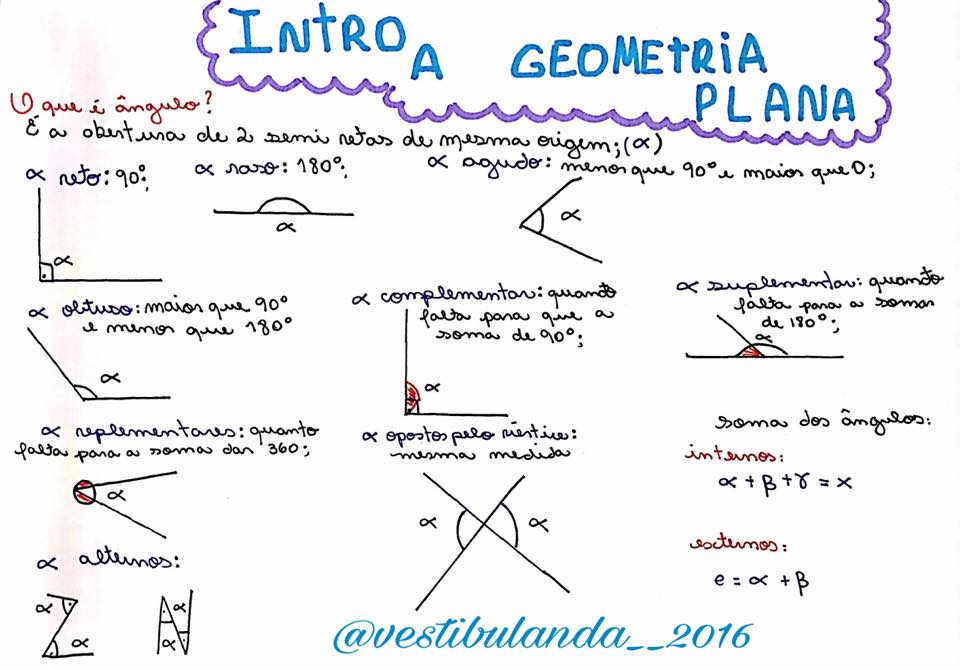 INTRO A GEOMETRIA
PLANA
O que é ângulo?
É a abertura de 2 semi retas de mesma origem; (α)
α reto: 90°;
α raso: 180°;
α agudo: menor que 90° e maior que 0;
α
α
α
α obtuso: maior que 90°
e menor que 180°
α
α complementar: quanto
falta para que a
soma de 90°;
α
α suplementar: quanto
falta para a somar
de 180°;
α
α replementares: quanto
falta para a soma dar 360;
α
α opostos pelo vértice:
mesma medida
α α
soma dos ângulos:
internos:
α + β + γ = x
externos:
e = α + β
α alternos:
α α
α α
@vestibulanda__2016